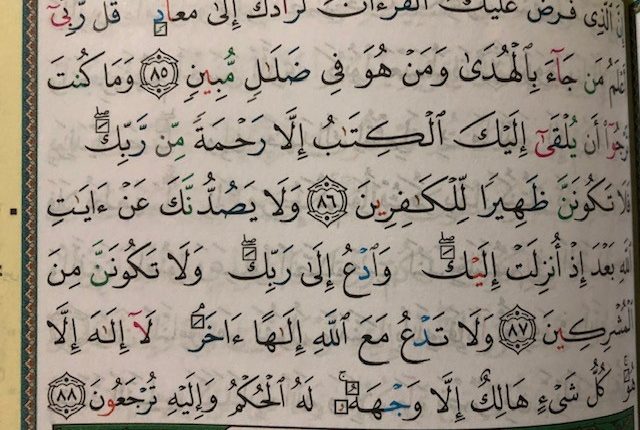 إِنَّ ٱلَّذِى فَرَضَ عَلَيْكَ ٱلْقُرْءَانَ لَرَآدُّكَ إِلَىٰ مَعَادٍ ۚ قُل رَّبِّىٓ
أَعْلَمُ مَن جَآءَ بِٱلْهُدَىٰ وَمَنْ هُوَ فِى ضَلَٰلٍ مُّبِينٍ ٨٥ وَمَا كُنتَ
تَرْجُوٓا۟ أَن يُلْقَىٰٓ إِلَيْكَ ٱلْكِتَٰبُ إِلَّا رَحْمَةً مِّن رَّبِّكَ ۖ
فَلَا تَكُونَنَّ ظَهِيرًا لِّلْكَٰفِرِينَ ٨٦ وَلَا يَصُدُّنَّكَ عَنْ ءَايَٰتِ
ٱللَّهِ بَعْدَ إِذْ أُنزِلَتْ إِلَيْكَ ۖ وَٱدْعُ إِلَىٰ رَبِّكَ ۖ وَلَا تَكُونَنَّ مِنَ
ٱلْمُشْرِكِينَ ٨٧ وَلَا تَدْعُ مَعَ ٱللَّهِ إِلَٰهًا ءَاخَرَ ۘ لَآ إِلَٰهَ إِلَّا
هُوَ ۚ كُلُّ شَىْءٍ هَالِكٌ إِلَّا وَجْهَهُۥ ۚ لَهُ ٱلْحُكْمُ وَإِلَيْهِ تُرْجَعُونَ ٨٨